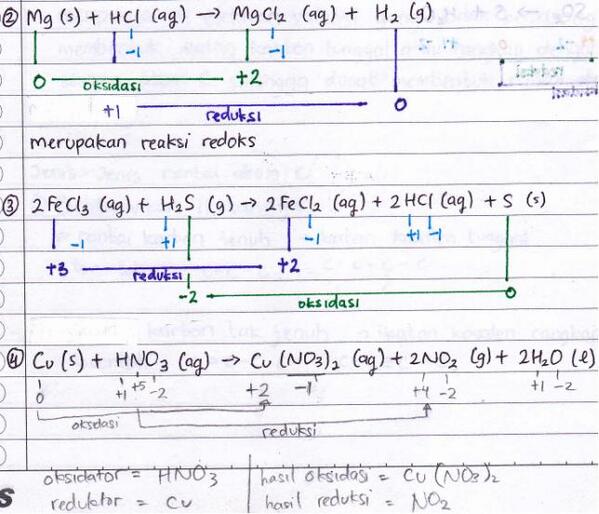 ② Mg (s) + HCl (aq) → MgCl2 (aq) + H2 (g)
-1 -1
0 oksidasi +2
+1 reduksi 0
merupakan reaksi redoks
③ 2FeCl3 (aq) + H2S (g) → 2FeCl2 (aq) + 2HCl (aq) + S (s)
-1 +1 -1 +1 -1
+3 reduksi +2
-2 oksidasi 0
④ Cu (s) + HNO3 (aq) → Cu (NO3)2 (aq) + 2NO2 (g) + 2H2O (l)
0 +1 +5 -2 +2 -1 +4 -2 +1 -2
oksidasi
reduksi
oksidator = HNO3 hasil oksidasi = Cu (NO3)2
reduktor = Cu hasil reduksi = NO2
S